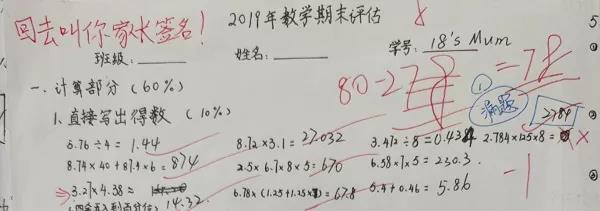 回去叫你家长签名！
2019年数学期末评估
班级：
姓名：
学号：18's Mum
80-2
=78
一、计算部分（60%）
1、直接写出得数（10%）
5.76÷4=1.44
8.72×3.1=27.032
3.472÷8=0.434
2.784×125×8=
2784
8.74×40+87.4×6=874
2.5×6.7×8×5=670
6.58×7×5=230.3
3.27×4.38≈
14.32
6.78×(1.25+1.25×)=67.8
5.4+0.46=5.86
-1
5